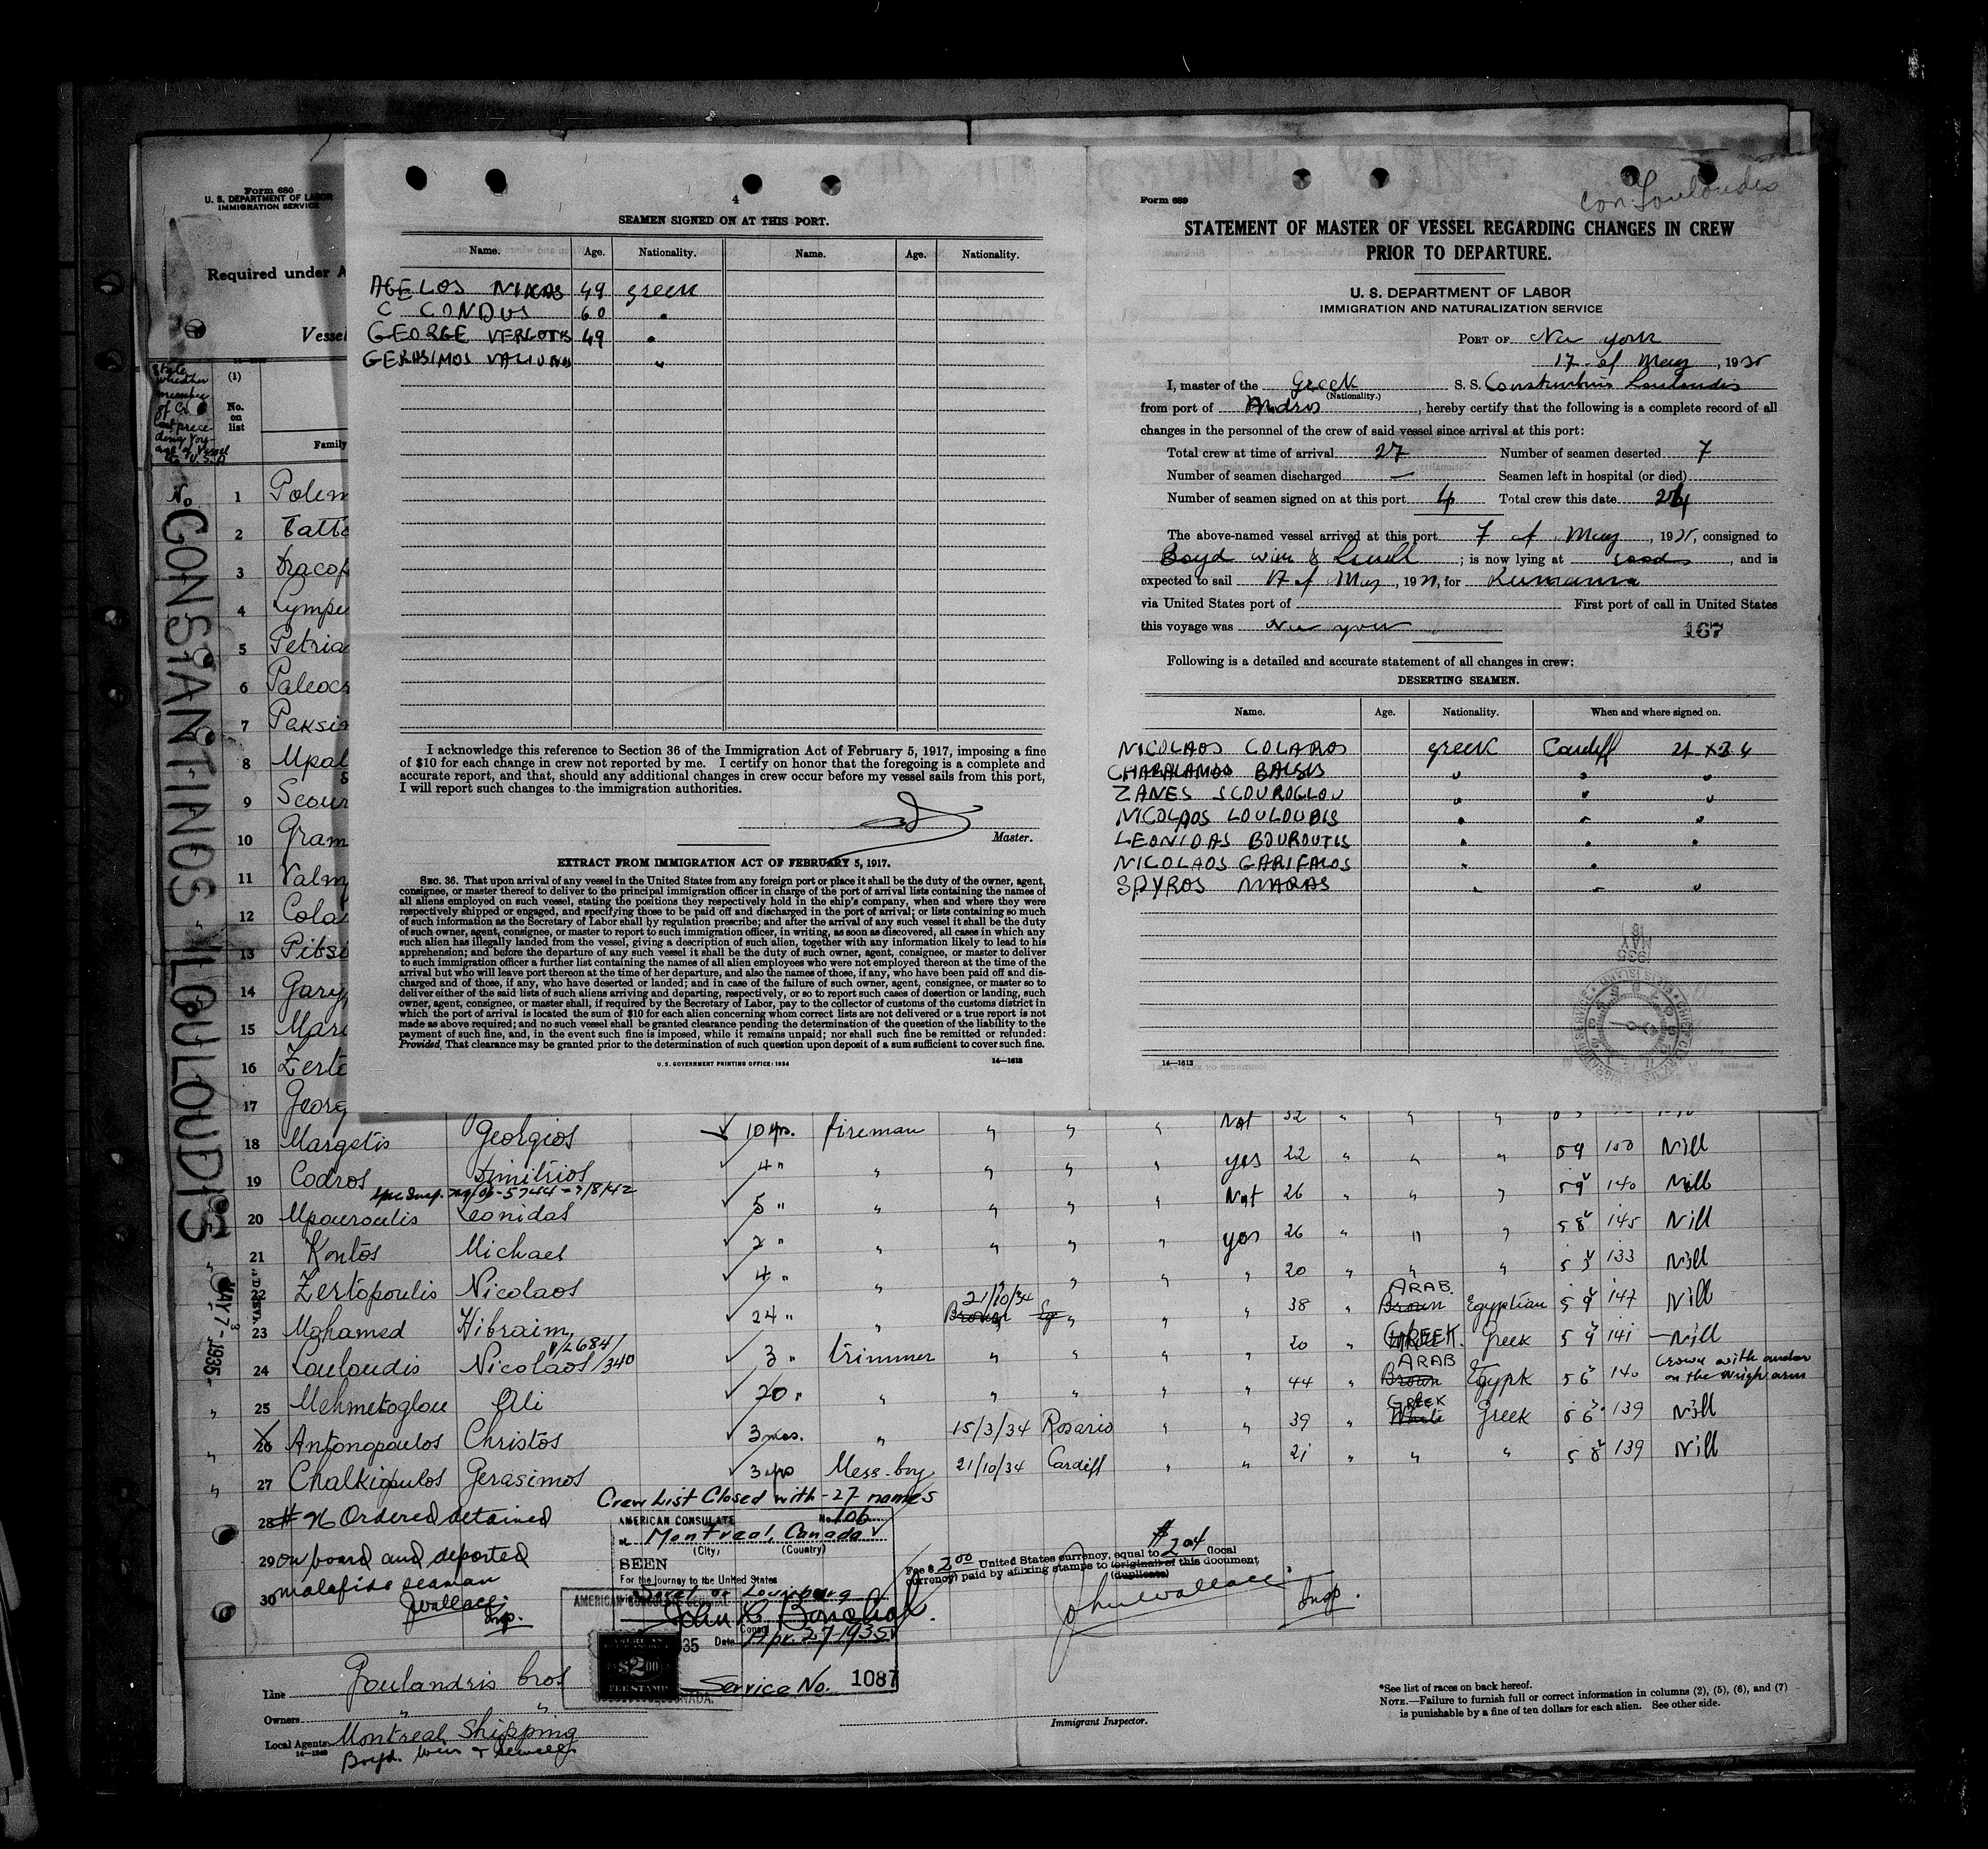 Form 680
U. S. DEPARTMENT OF LABOR
IMMIGRATION SERVICE
Required under A
Vessel
(1)
No. on list
Family
State whether member of Crew last preceding voyage of Vessel to U.S.A
No
CONSTANTINOS LOULOUDIS
MAY 7 - 1935
1 Polem
2 Tatto
3 Dracop
4 Lympe
5 Petria
6 Paleocr
7 Paksin
8 Mpal
9 Scour
10 Gram
11 Valm
12 Cola
13 Pitsi
14 Gary
15 Mari
16 Zerto
17 Georg
4
SEAMEN SIGNED ON AT THIS PORT.
Name. Age. Nationality. Name. Age. Nationality.
AGELOS NIKAS 49 greek
C CONDUS 60 "
GEORGE VERGOTIS 49 "
GERASIMOS "
I acknowledge this reference to Section 36 of the Immigration Act of February 5, 1917, imposing a fine
of $10 for each change in crew not reported by me. I certify on honor that the foregoing is a complete and
accurate report, and that, should any additional changes in crew occur before my vessel sails from this port,
I will report such changes to the immigration authorities.
Master.
EXTRACT FROM IMMIGRATION ACT OF FEBRUARY 5, 1917.
SEC. 36. That upon arrival of any vessel in the United States from any foreign port or place it shall be the duty of the owner, agent,
consignee, or master thereof to deliver to the principal immigration officer in charge of the port of arrival lists containing the names of
all aliens employed on such vessel, stating the positions they respectively hold in the ship's company, when and where they were
respectively shipped or engaged, and specifying those to be paid off and discharged in the port of arrival; or lists containing so much
of such information as the Secretary of Labor shall by regulation prescribe; and after the arrival of any such vessel it shall be the duty
of such owner, agent, consignee, or master to report to such immigration officer, in writing, as soon as discovered, all cases in which any
such alien has illegally landed from the vessel, giving a description of such alien, together with any information likely to lead to his
apprehension; and before the departure of any such vessel it shall be the duty of such owner, agent, consignee, or master to deliver
to such immigration officer a further list containing the names of all alien employees who were not employed thereon at the time of the
arrival but who will leave port thereon at the time of her departure, and also the names of those, if any, who have been paid off and dis-
charged and of those, if any, who have deserted or landed; and in case of the failure of such owner, agent, consignee, or master so to
deliver either of the said lists of such aliens arriving and departing, respectively, or so to report such cases of desertion or landing, such
owner, agent, consignee, or master shall, if required by the Secretary of Labor, pay to the collector of customs of the customs district in
which the port of arrival is located the sum of $10 for each alien concerning whom correct lists are not delivered or a true report is not
made as above required; and no such vessel shall be granted clearance pending the determination of the question of the liability to the
payment of such fine, and, in the event such fine is imposed, while it remains unpaid; nor shall such fine be remitted or refunded:
Provided, That clearance may be granted prior to the determination of such question upon deposit of a sum sufficient to cover such fine.
U. S. GOVERNMENT PRINTING OFFICE: 1934 14—1613
Form 689
Con. Louloudis
STATEMENT OF MASTER OF VESSEL REGARDING CHANGES IN CREW
PRIOR TO DEPARTURE.
U. S. DEPARTMENT OF LABOR
IMMIGRATION AND NATURALIZATION SERVICE
PORT OF New york
17 of May, 1935
I, master of the Greek S. S. Constantinos Louloudis
(Nationality.)
from port of Andros, hereby certify that the following is a complete record of all
changes in the personnel of the crew of said vessel since arrival at this port:
Total crew at time of arrival 27 Number of seamen deserted 7
Number of seamen discharged — Seamen left in hospital (or died)
Number of seamen signed on at this port 4 Total crew this date 24
The above-named vessel arrived at this port 7 of May, 1935, consigned to
Boyd Weir & Sewell; is now lying at, and is
expected to sail 17 of May, 19, for
via United States port of First port of call in United States
this voyage was New york
167
Following is a detailed and accurate statement of all changes in crew:
DESERTING SEAMEN.
Name. Age. Nationality. When and where signed on.
NICOLAOS COLAROS greek Cardiff 21 X 34
CHARALAMOS BALSIS " " "
ZANES SCOUROGLOU " " "
NICOLAOS LOULOUDIS " " "
LEONIDAS BOUROUTIS " " "
NICOLAOS GARIFALOS " "
SPYROS MARAS " " "
MAY 18 1935
14—1613
18 Margetis Georgios 10 yrs. fireman " " " Not 32 " " "
19 Codros Dimitrios 4 " " " " " yes 22 " " " 5 9 150 Nill
20 Mpouroulis Leonidas 5 " " " " " Not 26 " " " 5 9 140 Nill
21 Kontos Michael 2 " " " " " yes 26 " " " 5 8 145 Nill
22 Zertopoulis Nicolaos 4 " " " " " 20 " " " 5 3 133 Nill
23 Mohamed Hibraim 24 " " 21/10/34 " " 38 " ARAB. Brown Egyptian 5 9 147 Nill
24 Louloudis Nicolaos 3 " trimmer " " " " 20 " GREEK. Greek 5 9 141 Nill
25 Mehmetoglou Ali 20 " " " " " " 44 " ARAB Brown Egypt 5 6 140 Crown with
26 Antonopoulos Christos 3 mos. " 15/3/34 Rosario " " 39 " GREEK White Greek 5 6 139 Nill
27 Chalkiopulos Gerasimos 3 yrs Mess-boy 21/10/34 Cardiff " " 21 " " " 5 8 139 Nill
Crew List Closed with - 27 names
28 # 26 Ordered detained
29 on board and deported
30 malafide seaman
J Wallace
Insp.
AMERICAN CONSULATE No. 106
at Montreal, Canada
(City) (Country)
SEEN
For the journey to the United States
Sorel or Louisburg
Consul
Date Apr. 27-1935
$2.00
FEE STAMP
Service No. 1087
$2.04
Fee $2.00 United States currency, equal to (local
currency) paid by affixing stamps to (original) of this document
(duplicate)
John Wallace
Insp.
Line Goulandris bros
Owners " "
Local Agents Montreal Shipping
14—1240
Boyd. Weir & Sewell
Immigrant Inspector.
*See list of races on back hereof.
NOTE.—Failure to furnish full or correct information in columns (2), (5), (6), and (7)
is punishable by a fine of ten dollars for each alien. See other side.